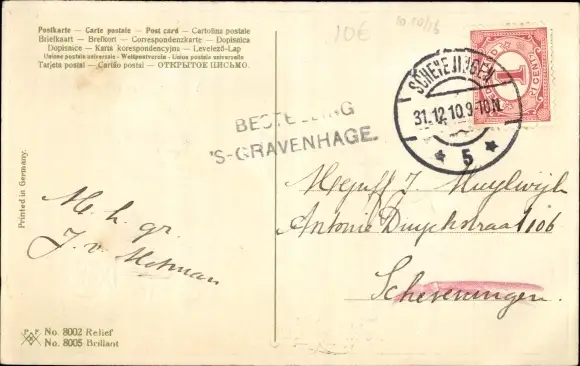 Postkarte — Carte postale — Post card — Cartolina postale
Briefkaart — Brefkort — Correspondenzkarte — Dopisnica
Dopisnice — Karta korespondencyjna — Levelező-Lap
Unione postale universale — Weltpostverein — Union postale universelle
Tarjeta postal — Cartão postal — ОТКРЫТОЕ ПИСЬМО.
10€
BESTELLING
'S-GRAVENHAGE.
SCHEVENINGEN
31.12.10.9-10N
5
1
CENT
Printed in Germany.
M. h. gr.
J. v.
Mejuff J. Muylwijk
Antonie Duyckstraat 106
Scheveningen.
No. 8002 Relief
No. 8005 Brillant